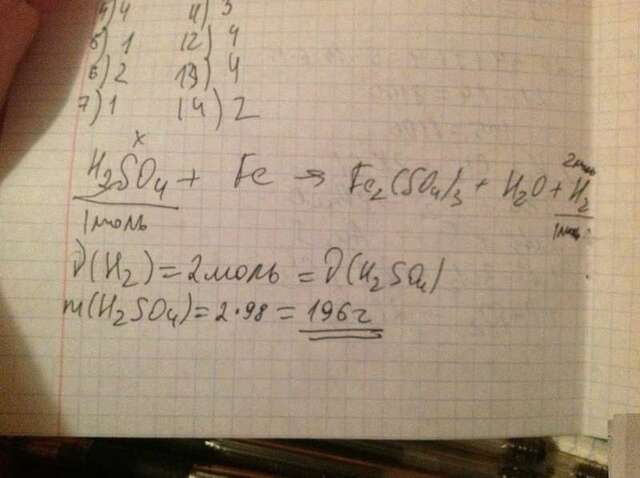 4) 4 11) 3
5) 1 12) 4
6) 2 13) 4
7) 1 14) 2
x 2моль
H2SO4 + Fe → Fe2(SO4)3 + H2O + H2
1моль 1моль
ν(H2) = 2моль = ν(H2SO4)
m(H2SO4) = 2·98 = 196г